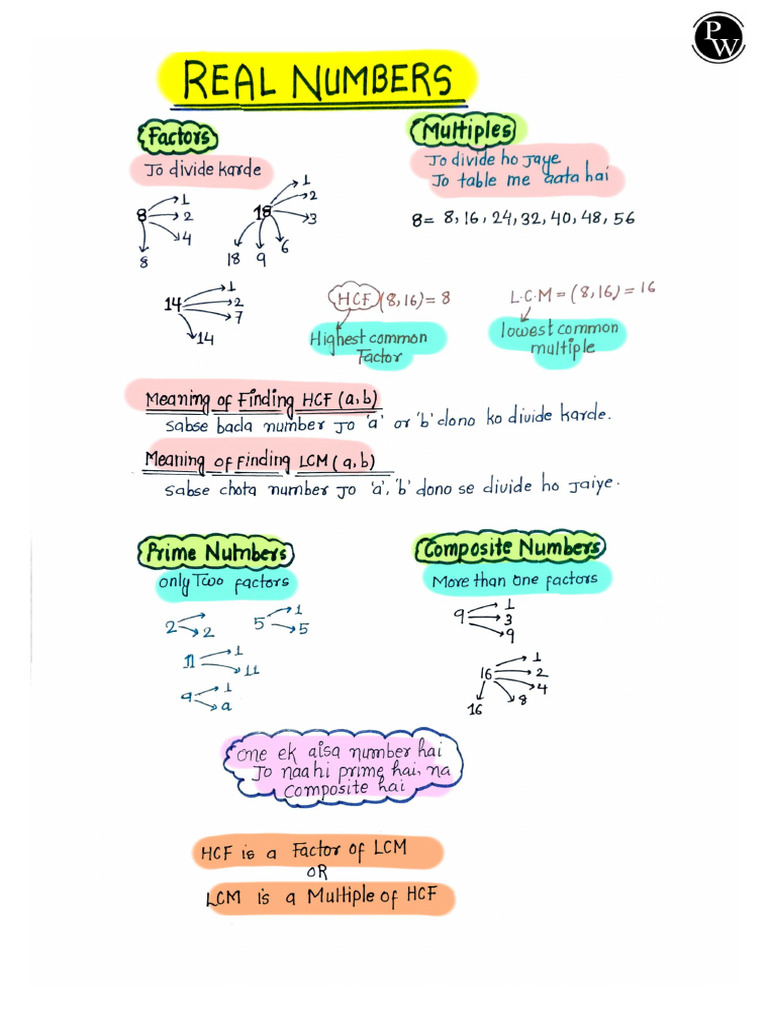 P
W
REAL NUMBERS
Factors
Jo divide karde
8 1
2
4
8
18 1
2
3
6
9
18
14 1
2
7
14
Multiples
Jo divide ho Jaye
Jo table me aata hai
8= 8, 16, 24, 32, 40, 48, 56
HCF (8,16)= 8
Highest common
Factor
L.C.M = (8,16) = 16
lowest common
multiple
Meaning of Finding HCF (a,b)
Sabse bada number Jo 'a' or 'b' dono ko divide karde.
Meaning of Finding LCM (a,b)
Sabse chota number Jo 'a', 'b' dono se divide ho Jaiye.
Prime Numbers
only Two factors
2 2
5 1
5
11 1
11
a 1
a
Composite Numbers
More than one factors
9 1
3
9
16 1
2
4
8
16
One ek aisa number hai
Jo naahi prime hai, na
Composite hai
HCF is a Factor of LCM
OR
LCM is a Multiple of HCF